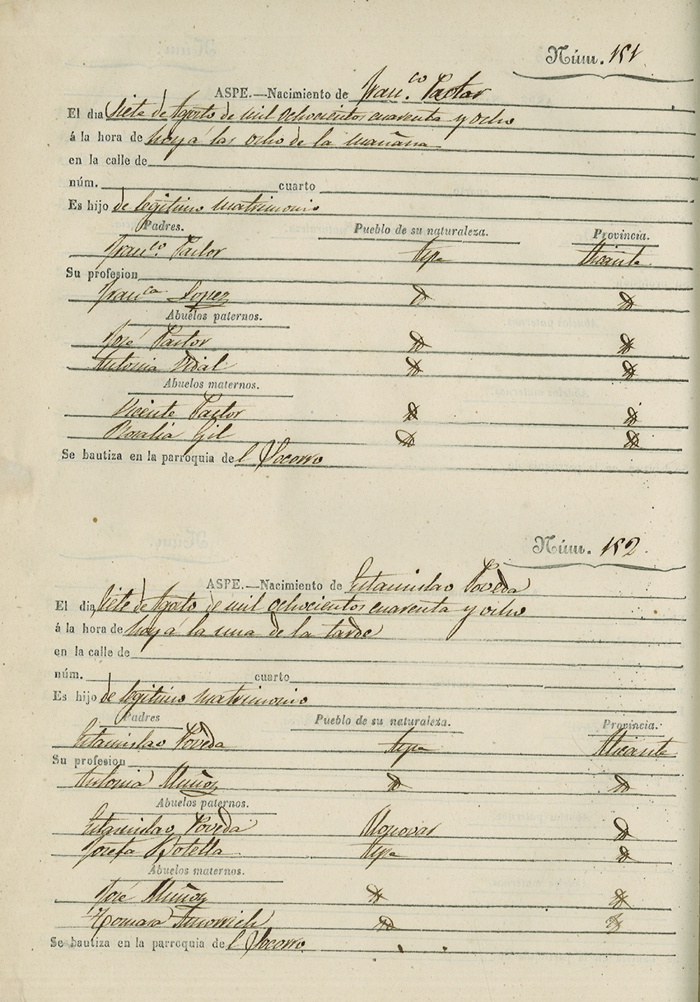 Núm. 151
ASPE.—Nacimiento de Fran.co Pastor
El dia Siete de Agosto de mil ochocientos cuarenta y ocho
á la hora de hoy á las ocho de la mañana
en la calle de
núm. cuarto
Es hijo de legitimo matrimonio
Padres. Pueblo de su naturaleza. Provincia.
Fran.co Pastor Aspe Alicante
Su profesion
Fran.ca Lopez
Abuelos paternos.
José Pastor
Antonia Vidal
Abuelos maternos.
Vicente Pastor
Rosalia Gil
Se bautiza en la parroquia del Socorro
Núm. 152
ASPE.—Nacimiento de Estanislao Poveda
El dia Siete de Agosto de mil ochocientos cuarenta y ocho
á la hora de hoy á la una de la tarde
en la calle de
núm. cuarto
Es hijo de legitimo matrimonio
Padres Pueblo de su naturaleza. Provincia.
Estanislao Poveda Aspe Alicante
Su profesion
Antonia Muñoz
Abuelos paternos.
Estanislao Poveda Monovar
Josefa Botella Aspe
Abuelos maternos.
José Muñoz
Tomasa
Se bautiza en la parroquia del Socorro